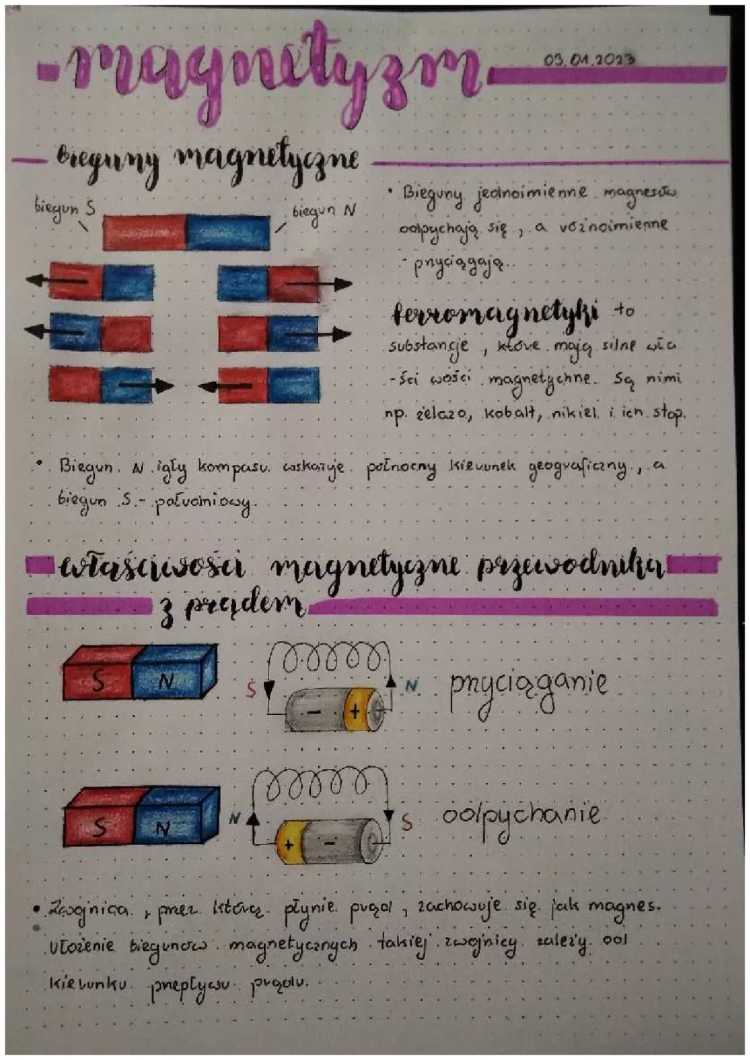 magnetyzm
03.01.2023
bieguny magnetyczne
biegun S
biegun N
• Bieguny jednoimienne magnesów
odpychają się, a różnoimienne
- przyciągają.
ferromagnetyki to
substancje, które mają silne wła
-ści wości magnetyczne. Są nimi
np. żelazo, kobalt, nikiel i ich stop.
• Biegun N igły kompasu wskazuje północny kierunek geograficzny, a
biegun S - południowy.
właściwości magnetyczne przewodnika
z prądem
S N
S N
- +
przyciąganie
S N
N S
+ -
odpychanie
• Zwojnica, przez którą płynie prąd, zachowuje się jak magnes.
Ułożenie biegunów magnetycznych takiej zwojnicy zależy od
kierunku przepływu prądu.